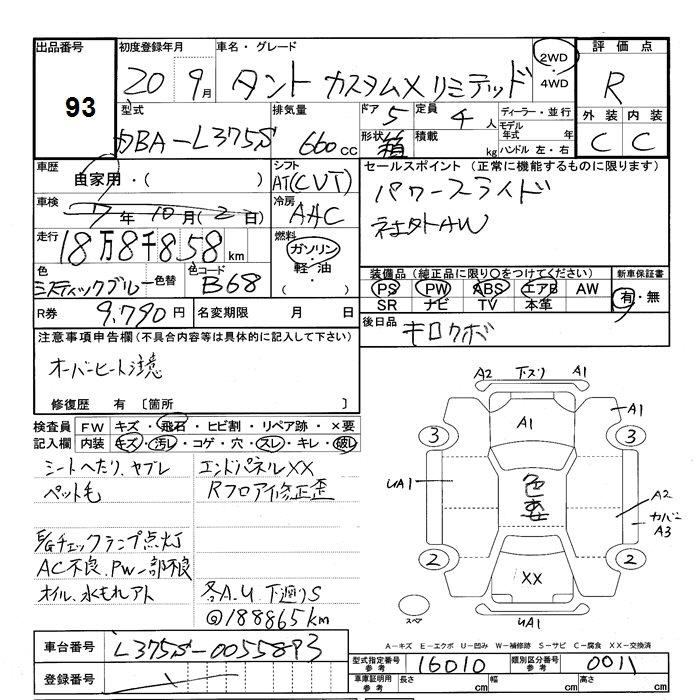 出品番号 初度登録年月 車名・グレード 評価点
93 20 9月 タント カスタムXリミテッド 2WD・4WD R
型式 排気量 ドア 5 定員 4人 ディーラー・並行 外装 内装
DBA-L375S 660cc 形状 箱 積載 kg モデル年式 年 ハンドル 左・右 C C
車歴 自家用・( ) シフト AT(CVT) セールスポイント (正常に機能するものに限ります)
車検 7年10月(2日) 冷房 AAC パワースライド
走行 18万8千858km 燃料 ガソリン・軽油・( ) 社外AW
色 ミスティックブルー 色替 色コード B68 装備品 (純正品に限り○をつけてください) 新車保証書
PS PW ABS エアB AW 有・無
SR ナビ TV 本革
R券 9,790円 名変期限 月 日 後日品 キロクボ
注意事項申告欄(不具合内容等は具体的に記入して下さい)
オーバーヒート注意
修復歴 有 〔箇所 〕
検査員 FW キズ・飛石・ヒビ割・リペア跡・×要
記入欄 内装 キズ・汚レ・コゲ・穴・スレ・キレ・破レ
シートへたり、ヤブレ エンドパネルXX
ペット毛 Rフロア修正歪
E/gチェックランプ点灯
AC不良、PW一部不良
オイル、水もれアト 各A.U 下廻りS
@188865km
A2 下スリ A1
A1
A1
3 3
UA1 色変 A2
カバーA3
2 2
XX
スペア UA1
A-キズ E-エクボ U-凹み W-補修跡 S-サビ C-腐食 XX-交換済
車台番号 L375S-0055893
型式指定番号 参考 16010 類別区分番号 参考 0011
登録番号
車庫証明用 参考 長さ cm 幅 cm 高さ cm